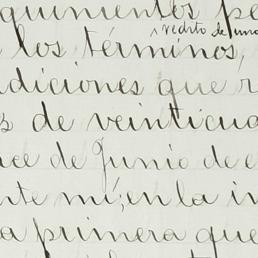 quinientos pe
redito de uno
los términos,
diciones que r
s de veinticua
ce de Junio de
nte mí; en la in
a primera que